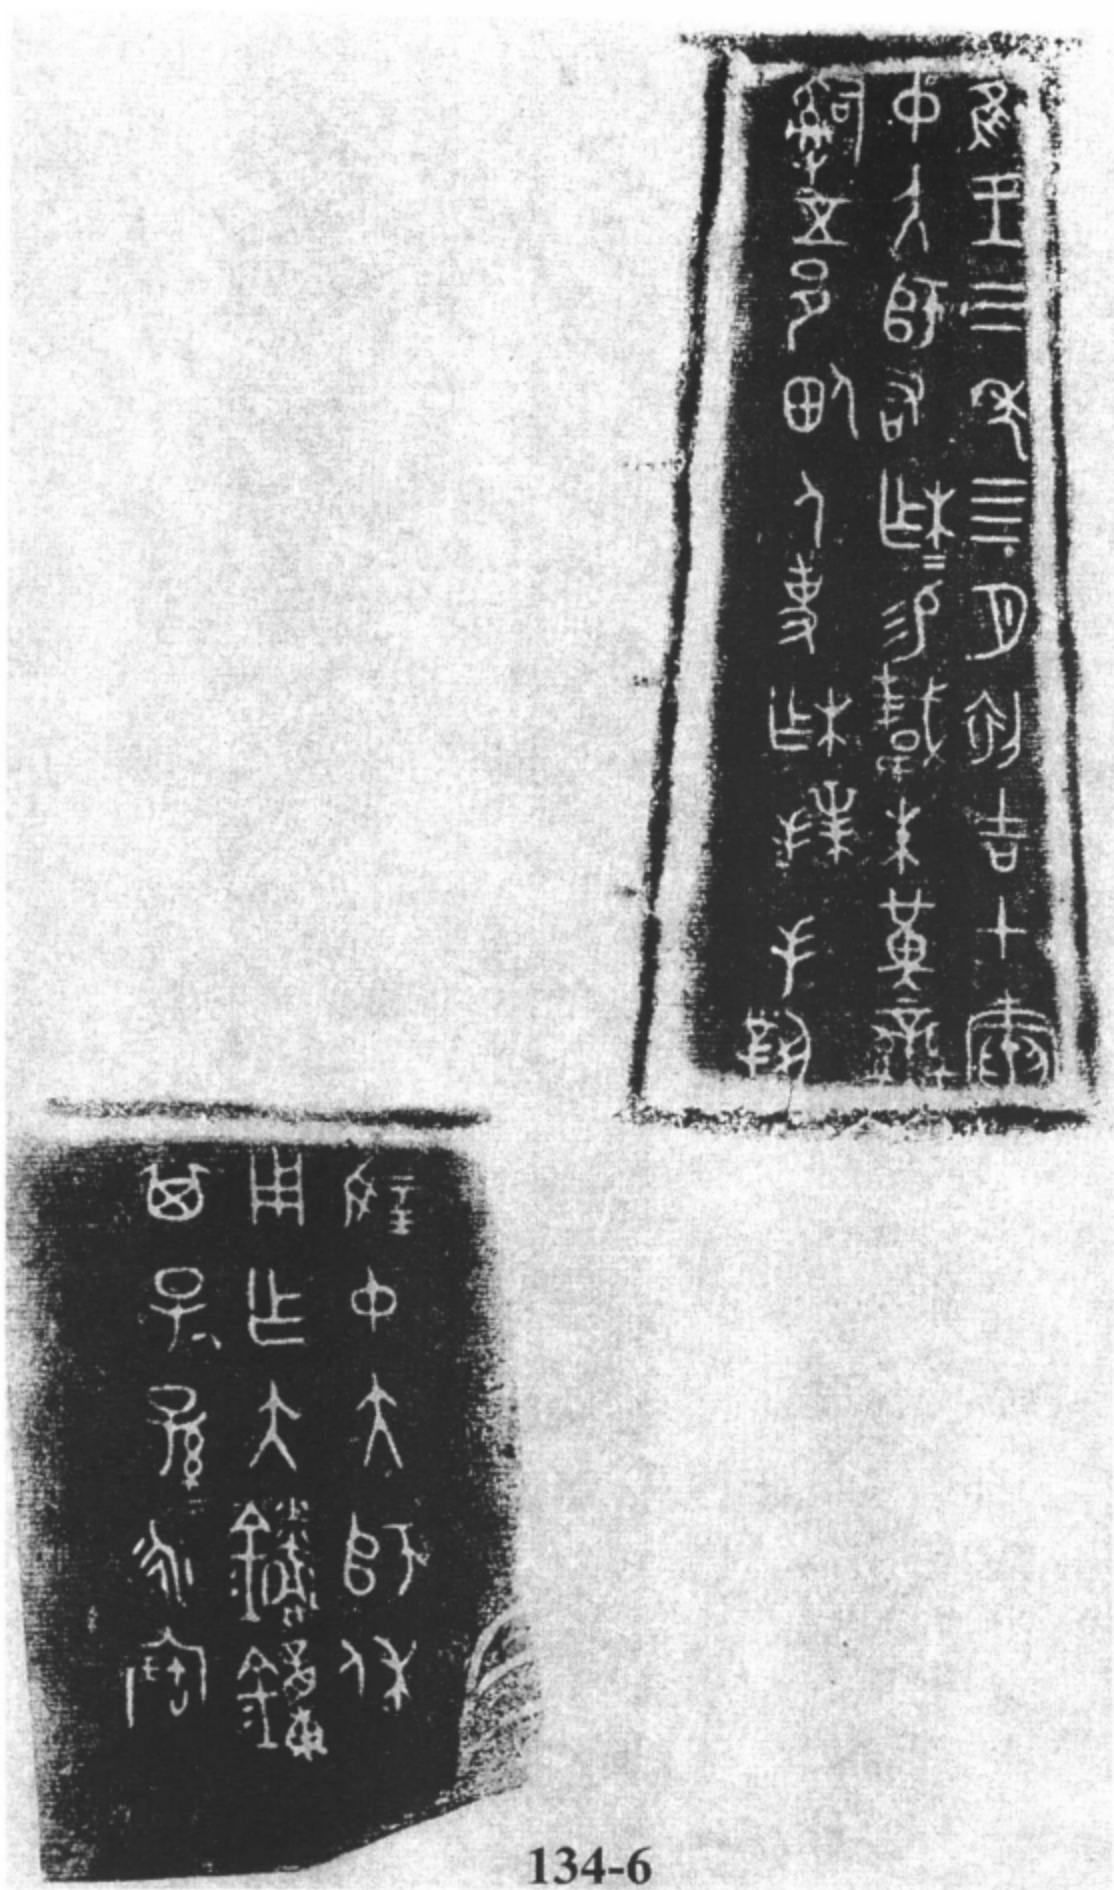 隹王三年四月初吉甲寅
中大師右柞=易載朱黃䜌
𤔲五邑佃人事柞拜手對
揚中大師休
用乍大鑐鐘
其子=孫=永寶
134-6